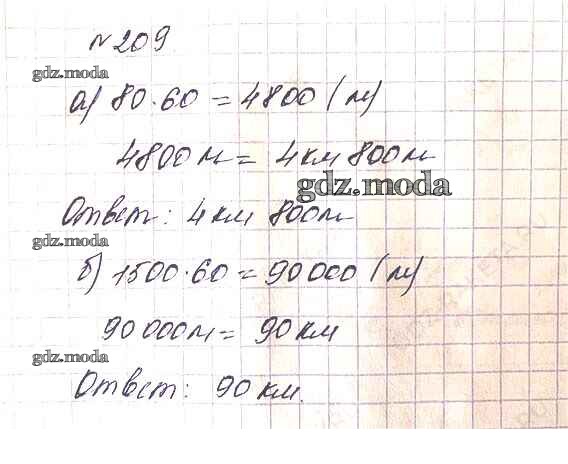 №209.
gdz.moda
а) 80·60 = 4800 (м)
4800м = 4км 800м
gdz.moda
Ответ: 4км 800м
gdz.moda
б) 1500·60 = 90000 (м)
90000м = 90км
gdz.moda
Ответ: 90км.